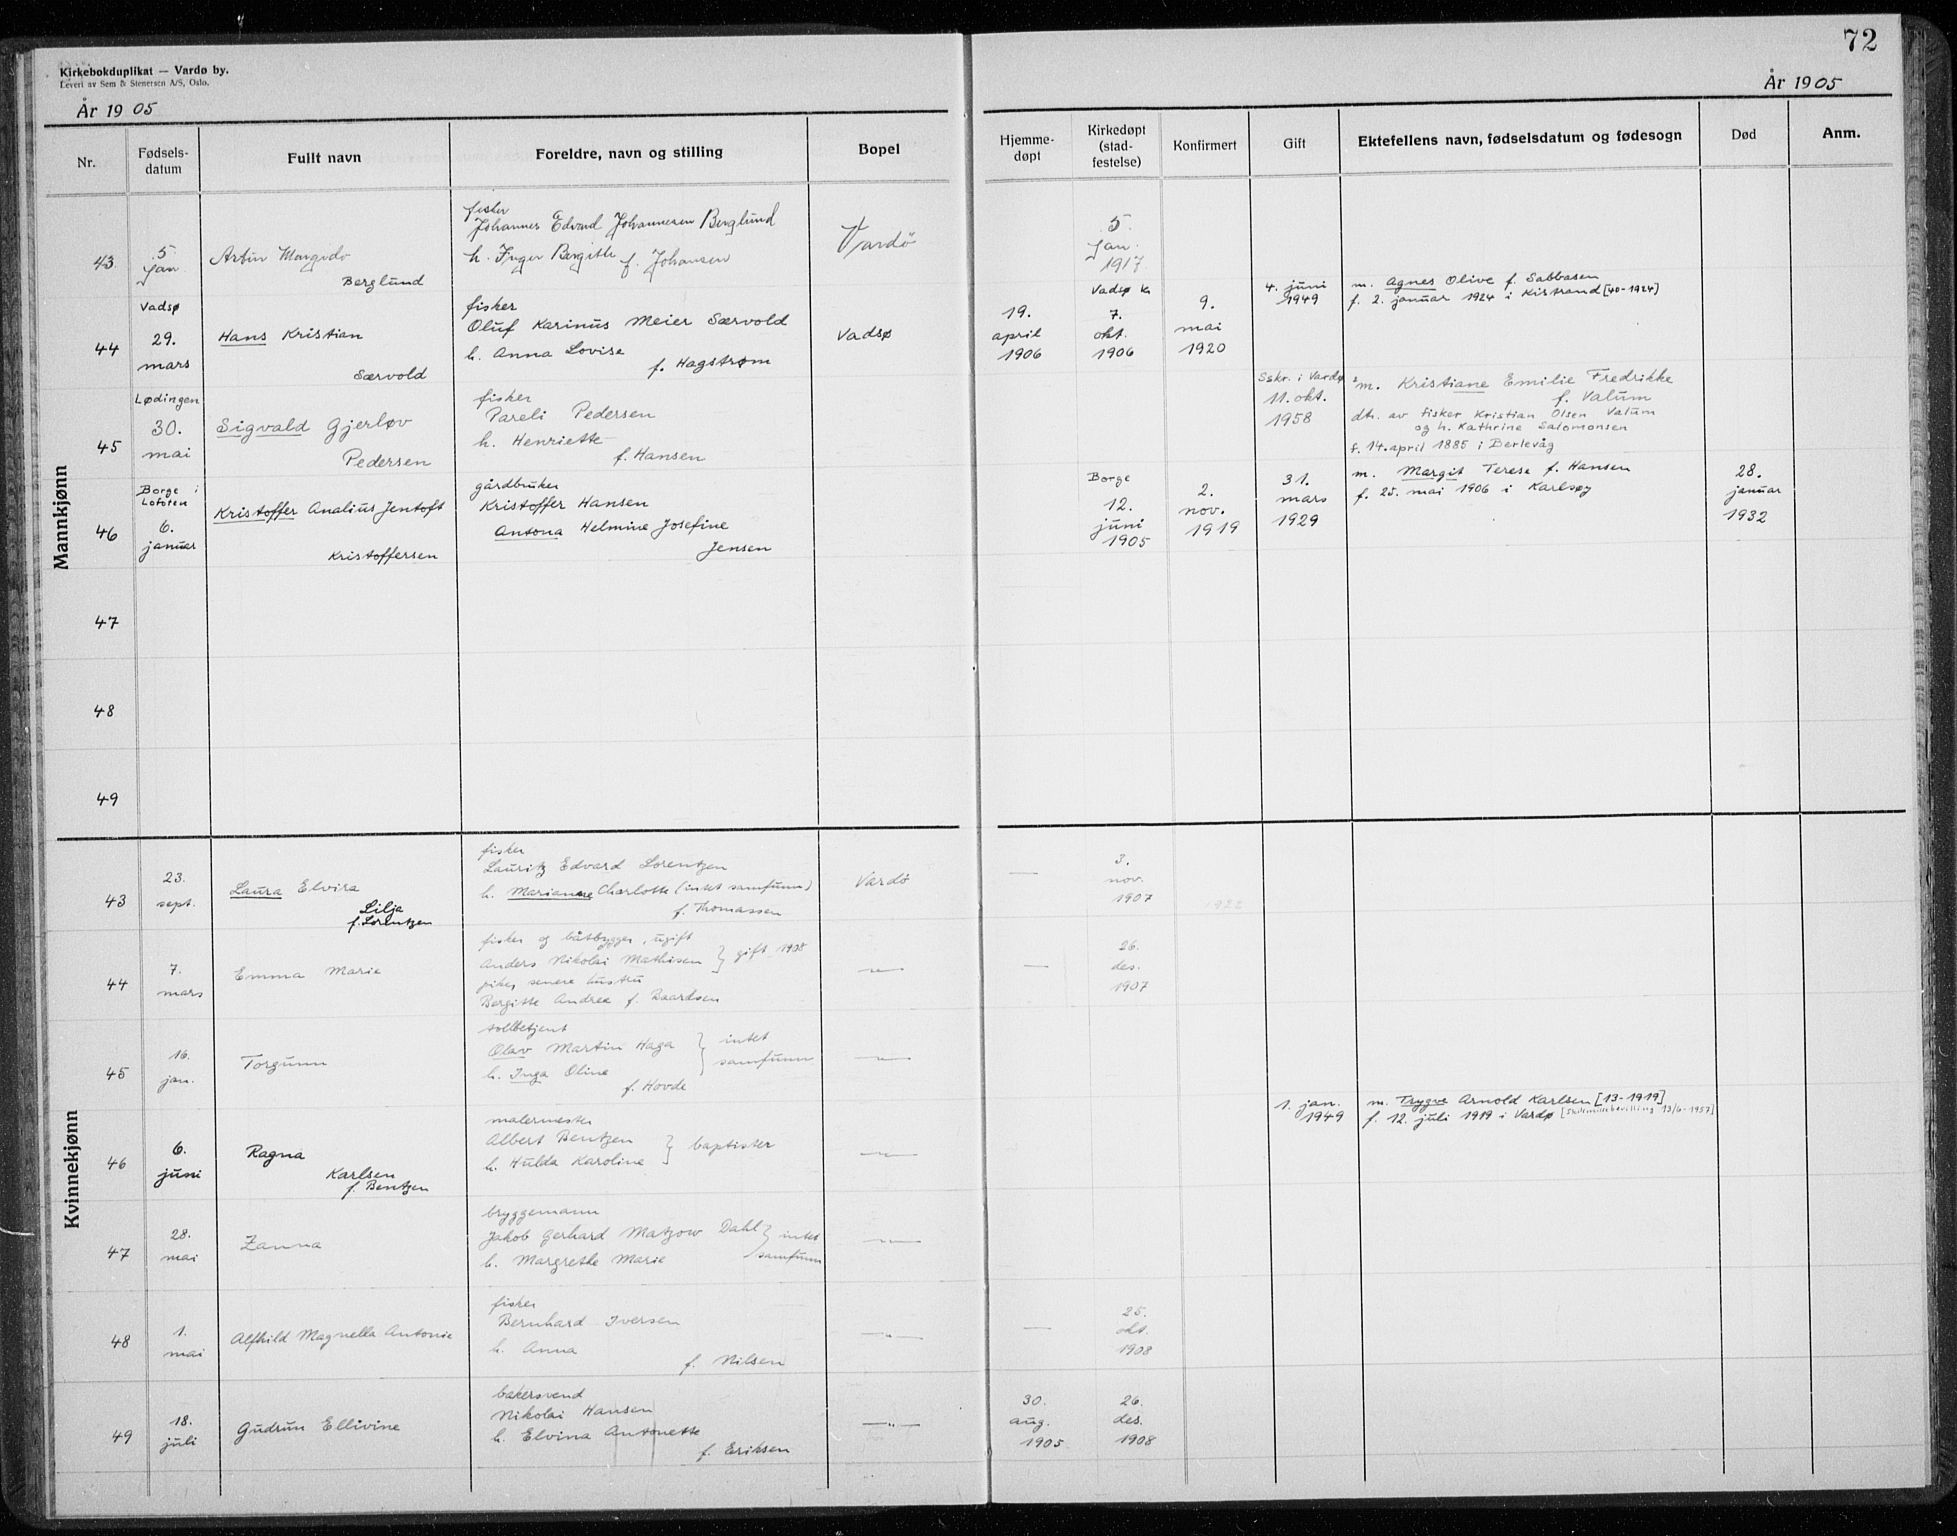 72
Kirkebokduplikat — Vardø by.
Levert av Sem & Stenersen A/S, Oslo.
År 1905
År 1905
Nr.
Fødsels-
datum
Fullt navn
Foreldre, navn og stilling
Bopel
Hjemme-
døpt
Kirkedøpt
(stad-
festelse)
Konfirmert
Gift
Ektefellens navn, fødselsdatum og fødesogn
Død
Anm.
Mannkjønn
43
5
Jan
Margido
Berglund
fisker
Johannes Edvard Johannesen Berglund
h. Inger Bergitte f. Johansen
Vardö
5.
Jan.
1917
44
Vadsø
29.
mars
Hans Kristian
Særvold
fisker
Oluf Karinus Meier Særvold
h. Anna Lovise
f. Hagstrøm
Vadsø
19.
april
1906
Vadsø
7.
okt.
1906
9.
mai
1920
4. juni
1949
m. Agnes Olive f. Sabbasen
f. 2. januar 1924 i Kistrand [40-1924]
45
Lødingen
30.
mai
Sigvald Gjerløv
Pedersen
fisker
Pareli Pedersen
h. Henriette
f. Hansen
Sskr. i Vardø
11. okt.
1958
m. Kristiane Emilie Fredrikke
f. Valum
dtr. av fisker Kristian Olsen Valum
og h. Kathrine Salomonsen
f. 14. april 1885 i Berlevåg
46
Borge i
Lofoten
6.
januar
Kristoffer Analius Jentoft
Kristoffersen
gårdbruker
Kristoffer Hansen
Antona Helmine Josefine
Jensen
Borge
12.
juni
1905
2.
nov.
1919
31.
mars
1929
m. Margit Terese f. Hansen
f. 25. mai 1906 i Karlsøy
28.
januar
1932
47
48
49
Kvinnekjønn
43
23.
sept.
Laura Elvira
Lilja
f. Lorentzen
fisker
Lauritz Edvard Lorentzen
h. Marianne Charlotte (intet samfunn)
f. Thomassen
Vardö
—
3.
nov.
1907
1922
44
7.
mars
Emma Marie
fisker og båtbygger, ugift
Anders Nikolai Mathisen } gift 1908
pike, senere hustru
Bergitte Andrea f. Baardsen
—"—
—
26.
des.
1907
45
16.
jan.
Torgunn
tollbetjent
Olav Martin Haga } intet
h. Inga Oline samfunn
f. Hovde
—"—
46
6.
juni
Ragna
Karlsen
f. Bentzen
malermester
Albert Bentzen
h. Hulda Karoline } baptister
—"—
1. jan.
1949
m. Trygve Arnold Karlsen [13-1919]
f. 12. juli 1919 i Vardø [Skilsmissebevilling 13/6-1957]
47
28.
mai
Zanna
bryggemann
Jakob Gerhard Matzow Dahl } intet
h. Margrethe Marie samfunn
—"—
48
1.
mai
Alfhild Magnella Antonie
fisker
Bernhard Iversen
h. Anna
f. Nilsen
—"—
—
25.
okt.
1908
49
18.
juli
Gudrun Ellivine
bakersvend
Nikolai Hansen
h. Elvina Antonette
f. Eriksen
—"—
30.
aug.
1905
26.
des.
1908